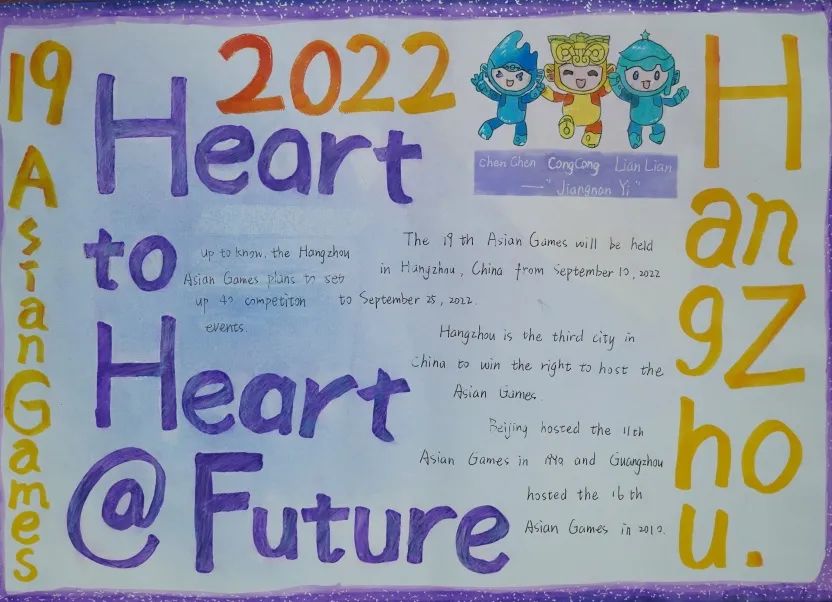 19
Asian Games
2022
Heart
to
Heart
@ Future
chen chen CongCong Lian Lian
——"Jiangnan Yi"
up to know, the Hangzhou
Asian Games plans to set
up 40 competiton
events.
The 19 th Asian Games will be held
in Hangzhou, China from September 10, 2022
to September 25, 2022.
Hangzhou is the third city in
China to win the right to host the
Asian Games.
Beijing hosted the 11th
Asian Games in 1990 and Guangzhou
hosted the 16 th
Asian Games in 2010.
HangZhou.